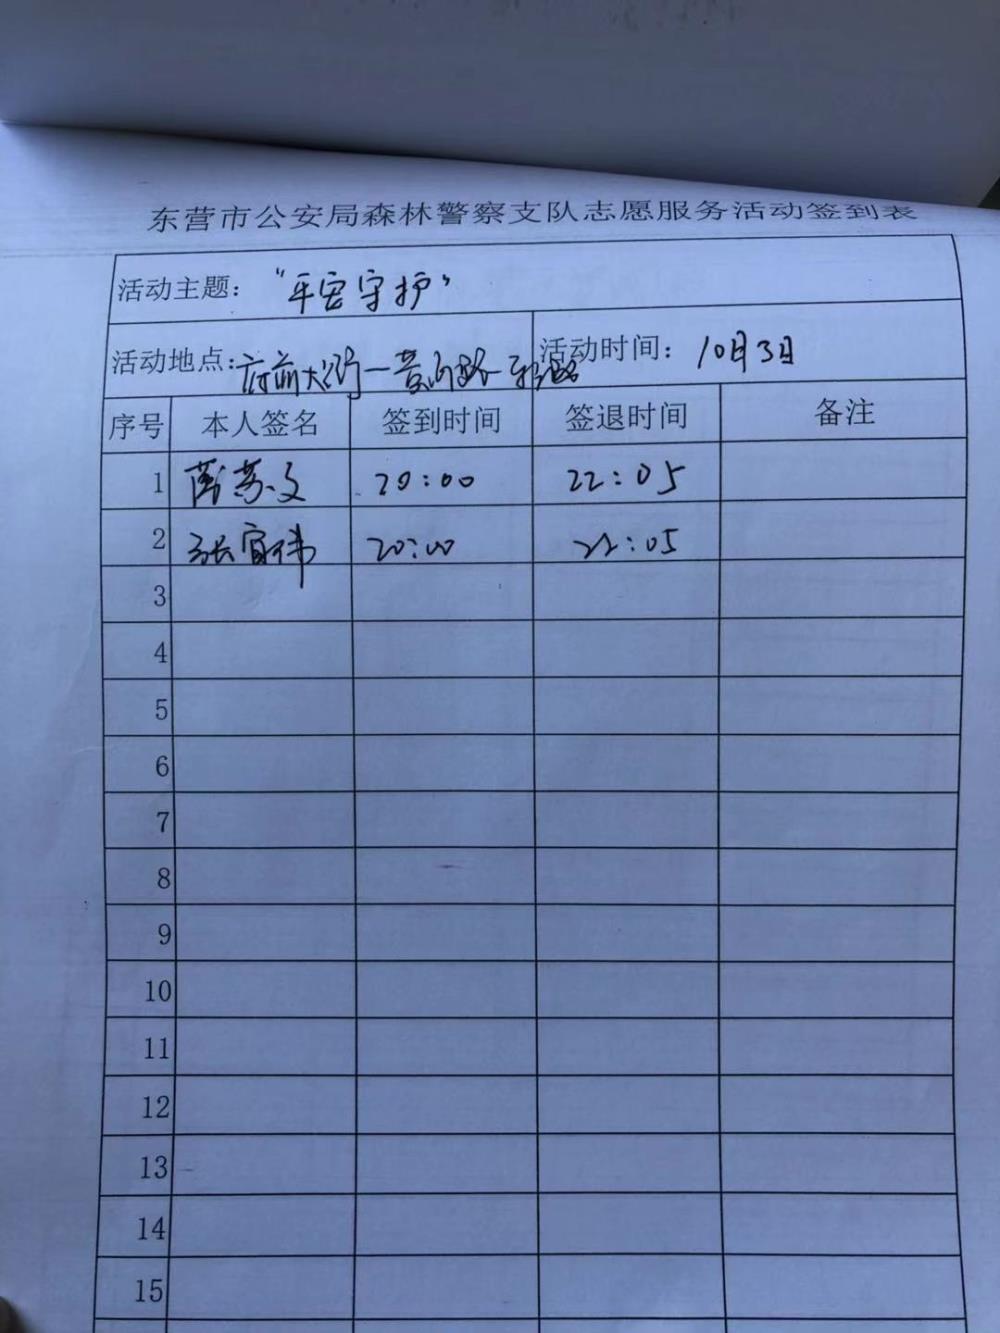 东营市公安局森林警察支队志愿服务活动签到表
活动主题： “平安守护”
活动地点： 府前大街一黄河路 活动时间： 10月3日
序号 本人签名 签到时间 签退时间 备注
1 苏文 20:00 22:05
2 张宜伟 20:00 22:05
3
4
5
6
7
8
9
10
11
12
13
14
15